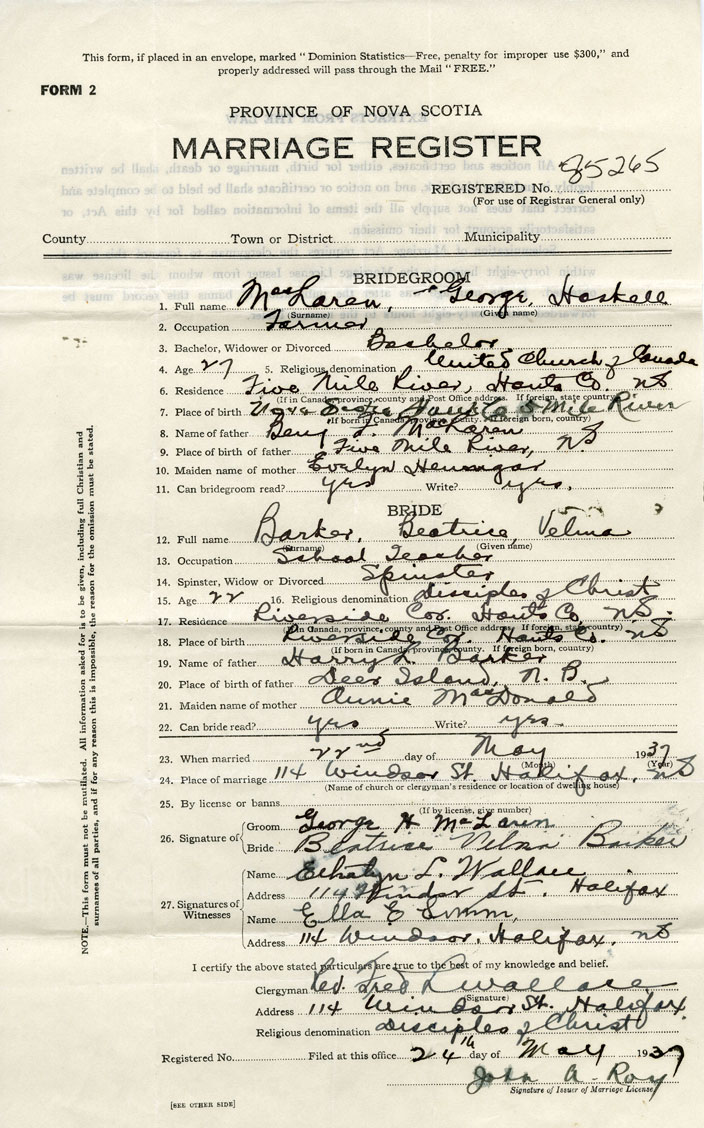 This form, if placed in an envelope, marked "Dominion Statistics—Free, penalty for improper use $300," and
properly addressed will pass through the Mail "FREE."
FORM 2
PROVINCE OF NOVA SCOTIA
MARRIAGE REGISTER
REGISTERED No. 85265
(For use of Registrar General only)
County Town or District Municipality
BRIDEGROOM
1. Full name MacLaren, George, Haskell
(Surname) (Given name)
2. Occupation Farmer
3. Bachelor, Widower or Divorced Bachelor
4. Age 27 5. Religious denomination United Church of Canada
6. Residence Five Mile River, Hants Co. NS
(If in Canada, province, county and Post Office address. If foreign, state country)
7. Place of birth Nova Scotia Hants Co 5 Mile River
(If born in Canada, province, county. If foreign born, country)
8. Name of father Benj F. MacLaren
9. Place of birth of father Five Mile River, NS
10. Maiden name of mother Evelyn
11. Can bridegroom read? yes Write? yes.
BRIDE
12. Full name Barker, Beatrice, Velma
(Surname) (Given name)
13. Occupation School Teacher
14. Spinster, Widow or Divorced Spinster
15. Age 22 16. Religious denomination Disciples of Christ
17. Residence Riverside Cor. Hants Co. NS.
(If in Canada, province, county and Post Office address. If foreign, state country)
18. Place of birth Riverside Cor. Hants Co. NS
(If born in Canada, province, county. If foreign born, country)
19. Name of father Harry L. Barker
20. Place of birth of father Deer Island, N. B.
21. Maiden name of mother Annie MacDonald
22. Can bride read? yes Write? yes.
23. When married 22nd day of May 1937
(Month) (Year)
24. Place of marriage 114 Windsor St. Halifax. NS
(Name of church or clergyman's residence or location of dwelling house)
25. By license or banns
(If by license, give number)
26. Signature of
Groom George H McLaren
Bride Beatrice Velma Barker
27. Signatures of Witnesses
Name L. Wallace
Address 114 Windsor St. Halifax
Name Ella E
Address 114 Windsor. Halifax. NS
I certify the above stated particulars are true to the best of my knowledge and belief.
Clergyman Rev. Fred Wallace
(Signature)
Address 114 Windsor St. Halifax.
Religious denomination Disciples of Christ
Registered No. Filed at this office 24th day of May 1937
John A. Roy
Signature of Issuer of Marriage License
[SEE OTHER SIDE]
NOTE.—This form must not be mutilated. All information asked for is to be given, including full Christian and
surnames of all parties, and if for any reason this is impossible, the reason for the omission must be stated.